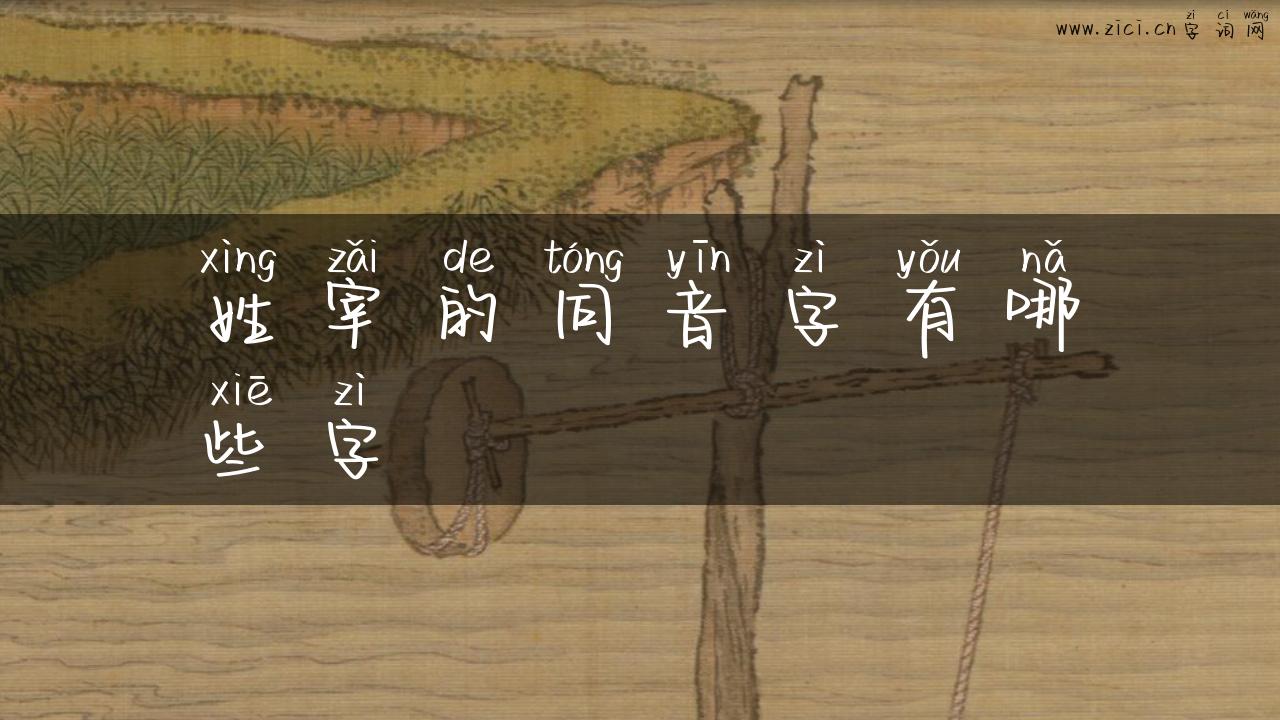 zì cí wǎng
www.zici.cn 字 词 网
xìng zǎi de tóng yīn zì yǒu nǎ
姓 宰 的 同 音 字 有 哪
xiē zì
些 字